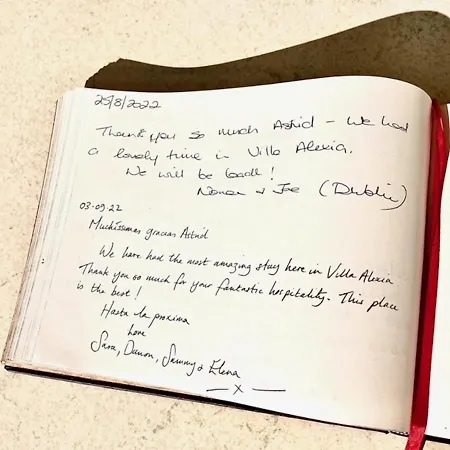 25/8/2022
Thank you so much Astrid - We had
a lovely time in Villa Alexia.
We will be back!
& Joe (Dublin)
03-09-22
Muchissimas gracias Astrid
We have had the most amazing stay here in Villa Alexia
Thank you so much for your fantastic hospitality. This place
is the best!
Hasta la proxima
Love
Sara, Damon, Sammy & Elena
— x —